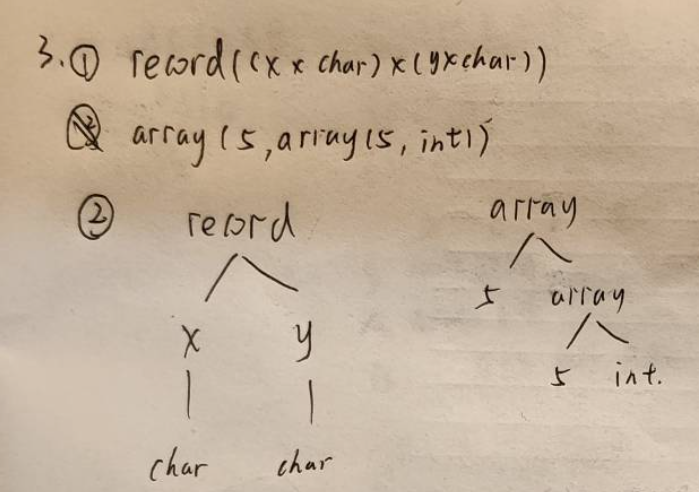 3. ① record((x x char) x (y x char))
array (5, array(5, int))
② record
x y
char char
array
5 array
5 int.